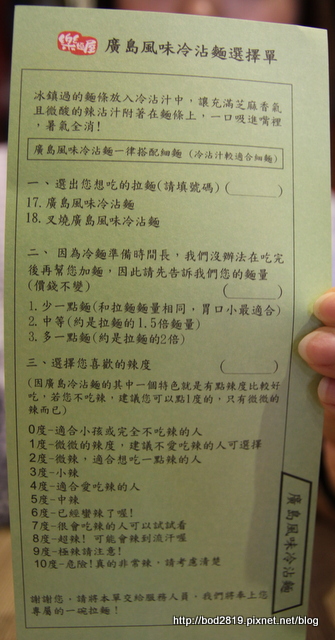 樂麵屋 廣島風味冷沾麵選擇單
冰鎮過的麵條放入冷沾汁中，讓充滿芝麻香氣
且微酸的辣沾汁附著在麵條上，一口吸進嘴裡
，暑氣全消！
廣島風味冷沾麵一律搭配細麵（冷沾汁較適合細麵）
一、選出您想吃的拉麵(請填號碼)(　　)
17.廣島風味冷沾麵
18.叉燒廣島風味冷沾麵
二、因為冷麵準備時間長，我們沒辦法在吃完
後再幫您加麵，因此請先告訴我們您的麵量
(價錢不變)　(　　)
1.少一點麵(和拉麵麵量相同，胃口小最適合)
2.中等(約是拉麵的1.5倍麵量)
3.多一點麵(約是拉麵的2倍)
三、選擇您喜歡的辣度　(　　)
(因廣島冷沾麵的其中一個特色就是有點辣度比較好
吃，若您不吃辣，建議您可以點1度的，只有微微的
辣而已)
0度-適合小孩或完全不吃辣的人
1度-微微的辣度，建議不愛吃辣的人可選擇
2度-微辣，適合想吃一點辣的人
3度-小辣
4度-適合愛吃辣的人
5度-中辣
6度-已經蠻辣了喔!
7度-很會吃辣的人可以試試看
8度-超辣! 可能會辣到流汗喔
9度-極辣請注意!
10度-危險!真的非常辣，請考慮清楚
謝謝您，請將本單交給服務人員，我們將奉上您
專屬的一碗拉麵！
廣島風味冷沾麵
http://bod2819.pixnet.net/blog